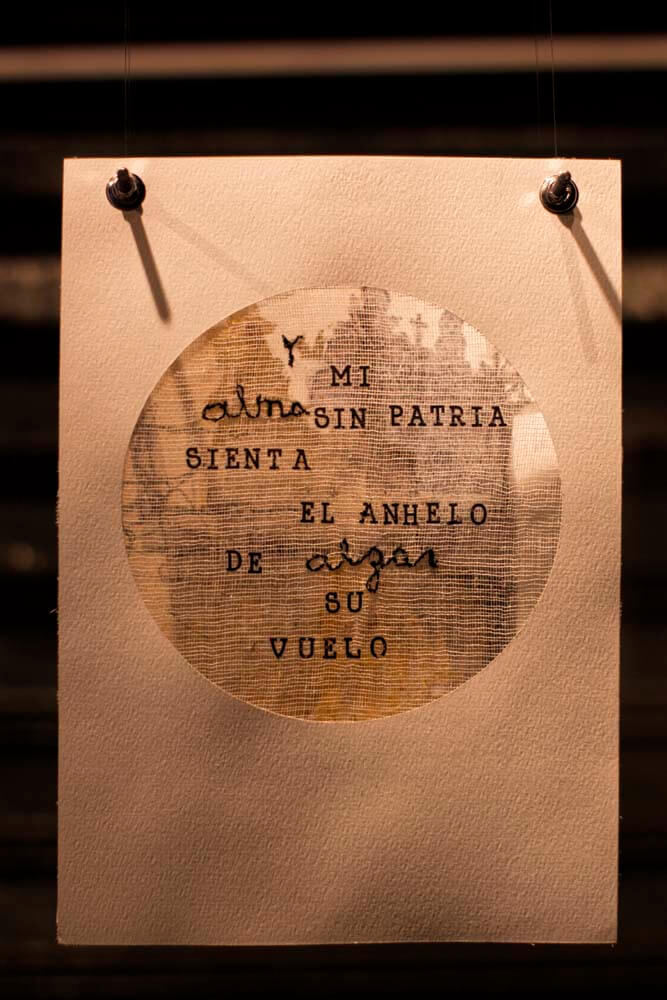 Y
MI
alma SIN PATRIA
SIENTA
EL ANHELO
DE alzar
SU
VUELO